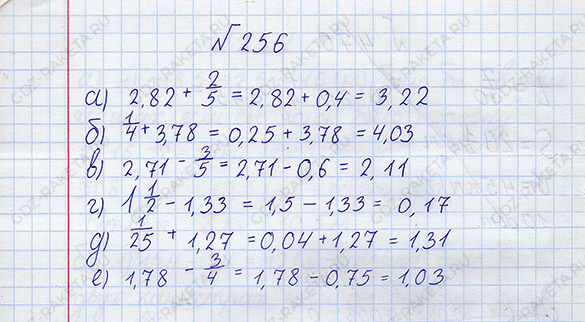 № 256
а) 2,82 + 2/5 = 2,82 + 0,4 = 3,22
б) 1/4 + 3,78 = 0,25 + 3,78 = 4,03
в) 2,71 - 3/5 = 2,71 - 0,6 = 2,11
г) 1 1/2 - 1,33 = 1,5 - 1,33 = 0,17
д) 1/25 + 1,27 = 0,04 + 1,27 = 1,31
е) 1,78 - 3/4 = 1,78 - 0,75 = 1,03